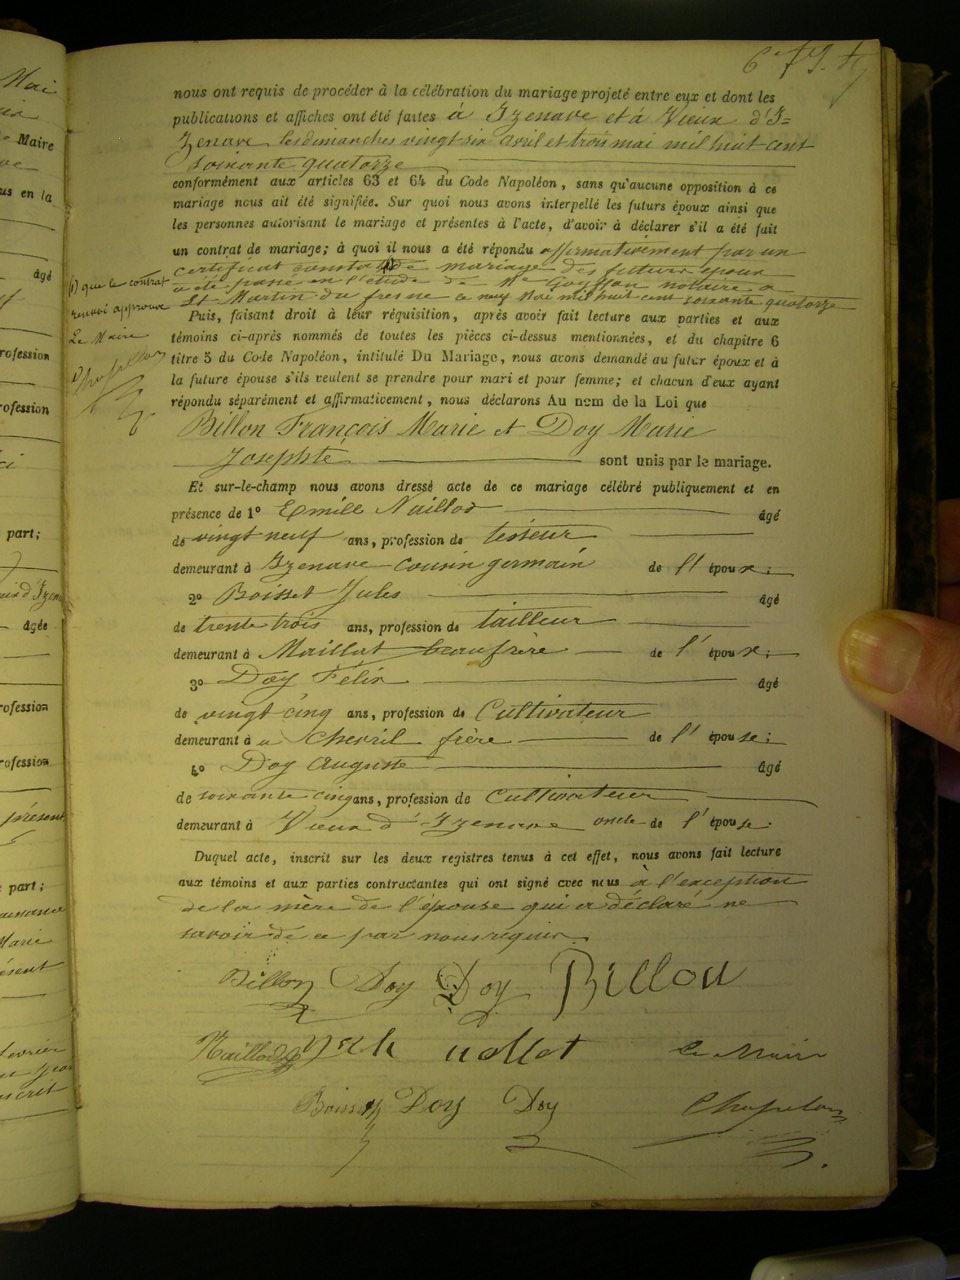 nous ont requis de procéder à la célébration du mariage projeté entre eux et dont les
publications et affiches ont été faites à Izenave et à Vieux d'I=
zenave les dimanches vingt six avril et trois mai mil huit cent
soixante quatorze
conformément aux articles 63 et 64 du Code Napoléon, sans qu'aucune opposition à ce
mariage nous ait été signifiée. Sur quoi nous avons interpellé les futurs époux ainsi que
les personnes autorisant le mariage et présentes à l'acte, d'avoir à déclarer s'il a été fait
un contrat de mariage; à quoi il nous a été répondu affirmativement par un
certificat constat (1) de mariage des futurs époux
a été passé en l'étude de Me Goyffon notaire à
St Martin du fresne ce neuf Mai mil huit cent soixante quatorze
(1) que le contrat
renvoi approuvé
Le Maire
Chapelon
Puis, faisant droit à leur réquisition, après avoir fait lecture aux parties et aux
témoins ci-après nommés de toutes les pièces ci-dessus mentionnées, et du chapitre 6
titre 5 du Code Napoléon, intitulé Du Mariage, nous avons demandé au futur époux et à
la future épouse s'ils veulent se prendre pour mari et pour femme; et chacun d'eux ayant
répondu séparément et affirmativement, nous déclarons Au nom de la Loi que
Billon François Marie et Doy Marie
Josephte sont unis par le mariage.
Et sur-le-champ nous avons dressé acte de ce mariage célébré publiquement et en
présence de 1o Emille Naillod âgé
de vingt neuf ans, profession de tisseur
demeurant à Izenave cousin germain de l'époux;
2o Boisset Jules âgé
de trente trois ans, profession de tailleur
demeurant à Maillat beaufrère de l'époux;
3o Doy Félix âgé
de vingt cinq ans, profession de Cultivateur
demeurant à a Chevril frère de l'épouse;
4o Doy Auguste âgé
de soixante cinq ans, profession de Cultivateur
demeurant à Vieux d'Izenave oncle de l'épouse.
Duquel acte, inscrit sur les deux registres tenus à cet effet, nous avons fait lecture
aux témoins et aux parties contractantes qui ont signé avec nous à l'exception
de la mère de l'épouse qui a déclaré ne
savoir de ce par nous requise.
Billon Doy Doy Billon
Naillod Le Maire
Boisset Doy Doy Chapelon